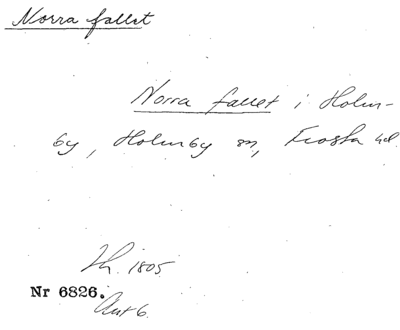 Norra fallet
Norra fallet i Holm-
by, Holmby sn, Frosta hd.
Lh. 1805
Nr 6826.
Akt 6.